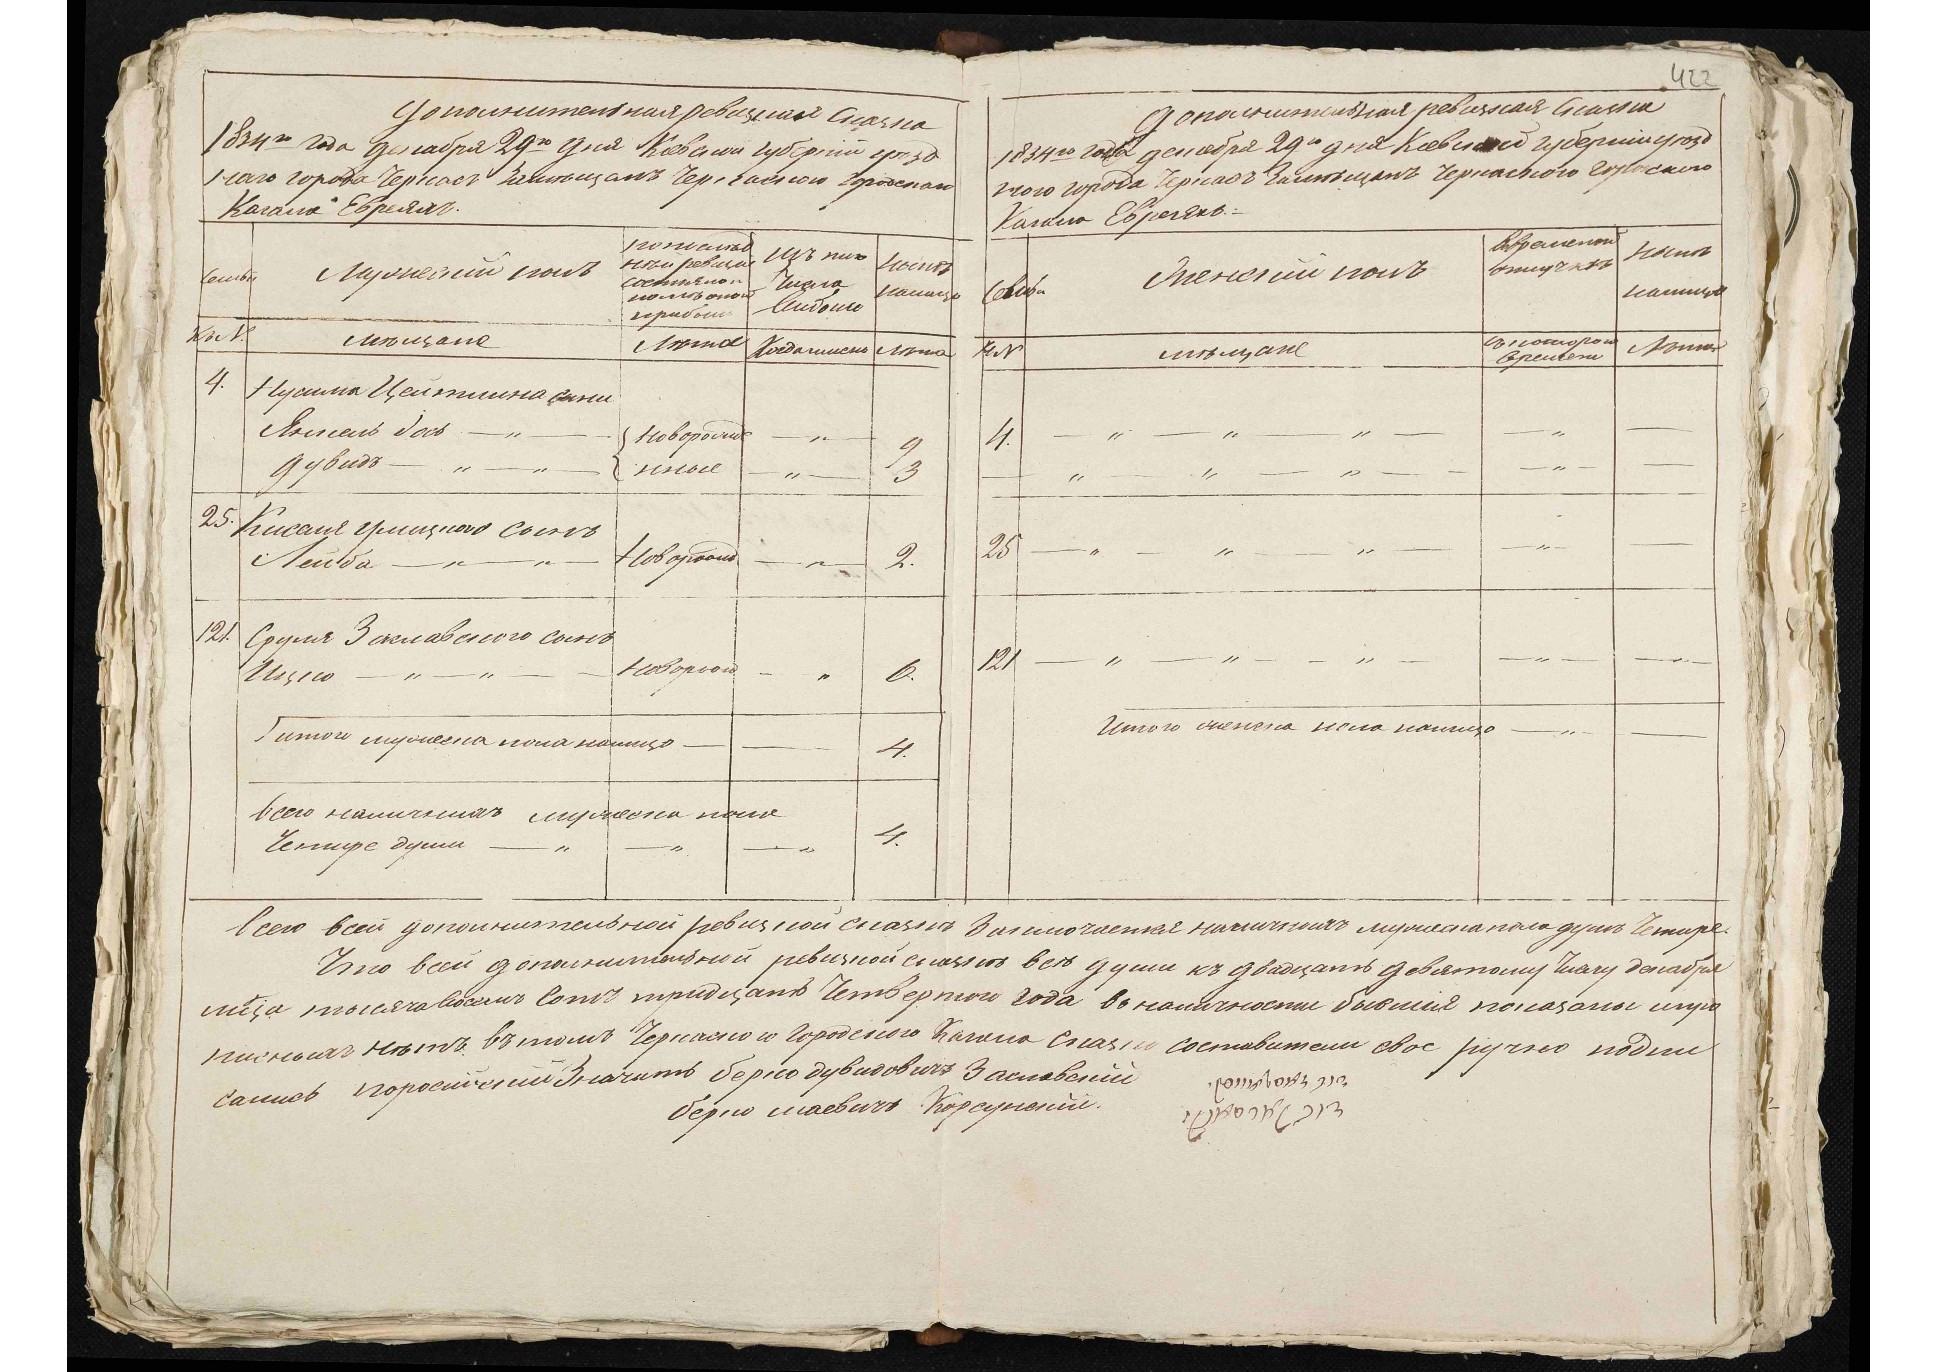 422
Дополнительная ревизкая сказка
1834го года декабря 29го дня Киевской губернии уезд
ного города Черкас замещанъ Черкаского городскаго
Кагала Евреяхъ.
Семьи
Мужеский полъ
по последней ревизии состояло и после оной прибыло
Изъ того числа выбыло
Ныне налицо
К № мещане Лета Когда именно Лета
4. Нусима Цейтлина сыни
Янкель Іось — „ — новорож 9
Дувидъ — „ — „ — нные — „ — 3
25. Кисаля сынъ
Лейба — „ — „ — новорож — „ — 2.
121. Сруля Заславского сынъ
Ицко — „ — „ — новорож — „ 6.
Итого мужеска пола налицо — — 4.
Всего наличныхъ мужеска пола
Четире души — „ — „ — „ 4.
Дополнительная ревизкая сказка
1834го года декабря 29го дня Киевской губернии уезд
ного города Черкасъ замещанъ Черкаского городского
Кагала Евреяхъ. =
Семьи
Женский полъ
Во временной отлучке
Ныне налицо
К № мещане съ которого времени Лета
4. — „ — „ — „ — — „ — —
— „ — „ — „ — — „ — —
25 — „ — „ — „ — — „ — —
121 — „ — „ — „ — — „ — — „ —
Итого женска пола налицо — „ — —
Всего всей дополнительной ревизкой сказке Заключается наличныхъ мужеска пола душъ Четире.
Что всей дополнительной ревизкой сказке все души къ двадцать девятому числу декабря
мца тысяча восемъ сотъ тридцать Четвертого года въ наличности бывшия показаны и про
писныхъ нетъ въ томъ Черкаского городского Кагала сказки составители свое ручно подпи
сались поросийский Значитъ берко дувидовичъ Заславский
берко маевичъ Корсунский.